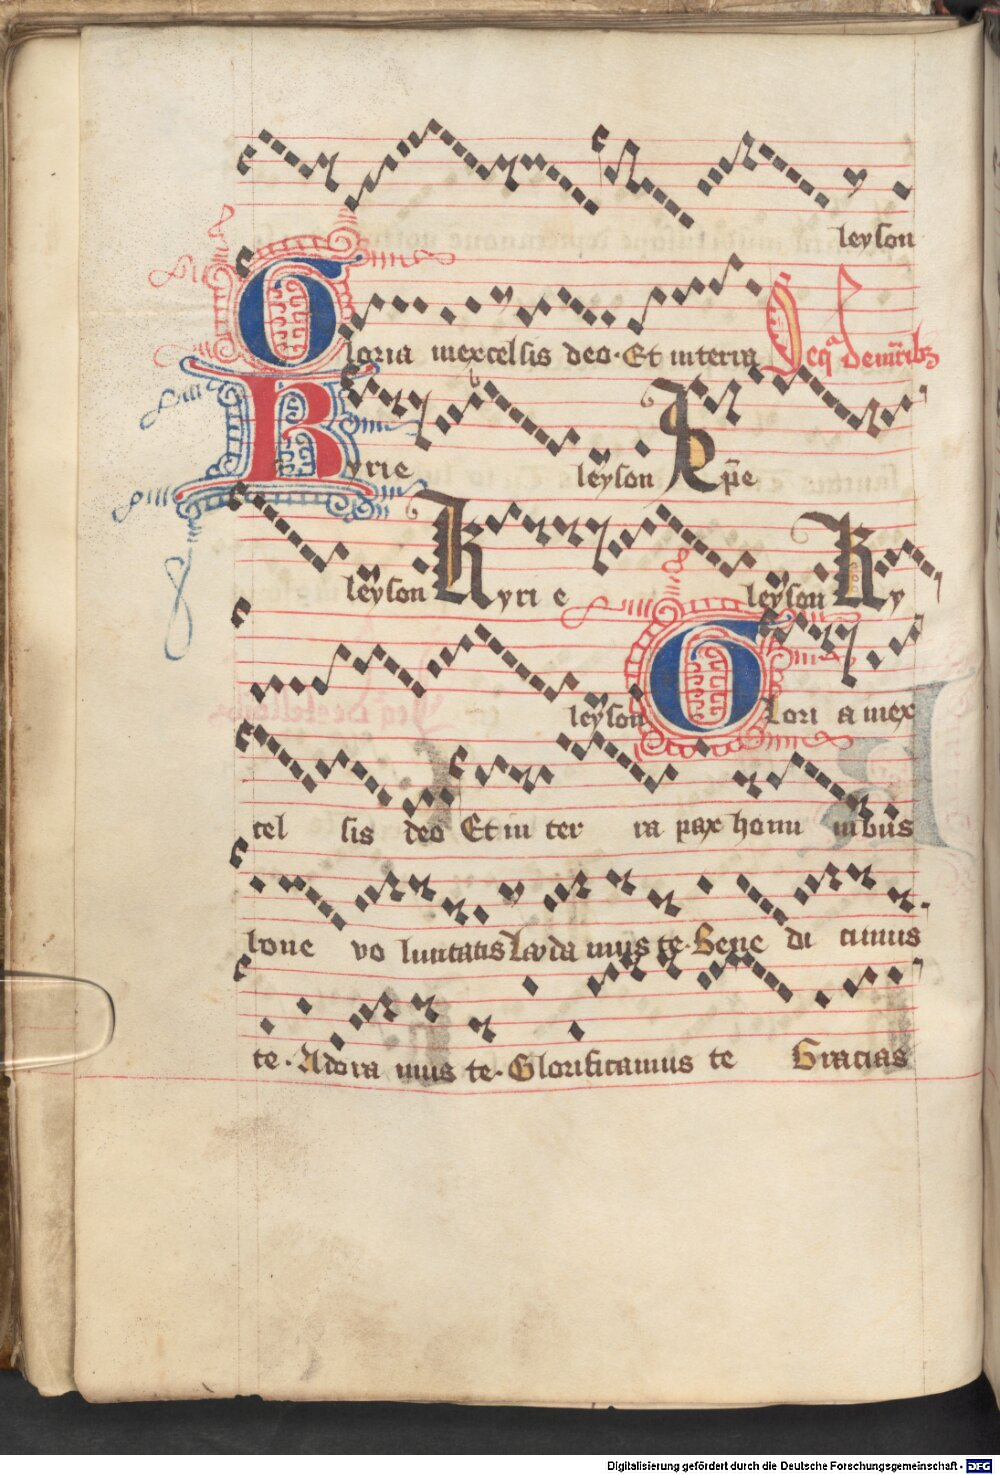 leyson
Gloria inexcelsis deo. Et interra
Kyrie leyson Xp̄e
leyson Kyri e leyson Ky
leyson Glori a inex
cel sis deo Et in ter ra pax homi nibus
bone vo luntatis Lauda mus te. Bene di cimus
te. Adora mus te. Glorificamus te Gracias
Digitalisierung gefördert durch die Deutsche Forschungsgemeinschaft - DFG